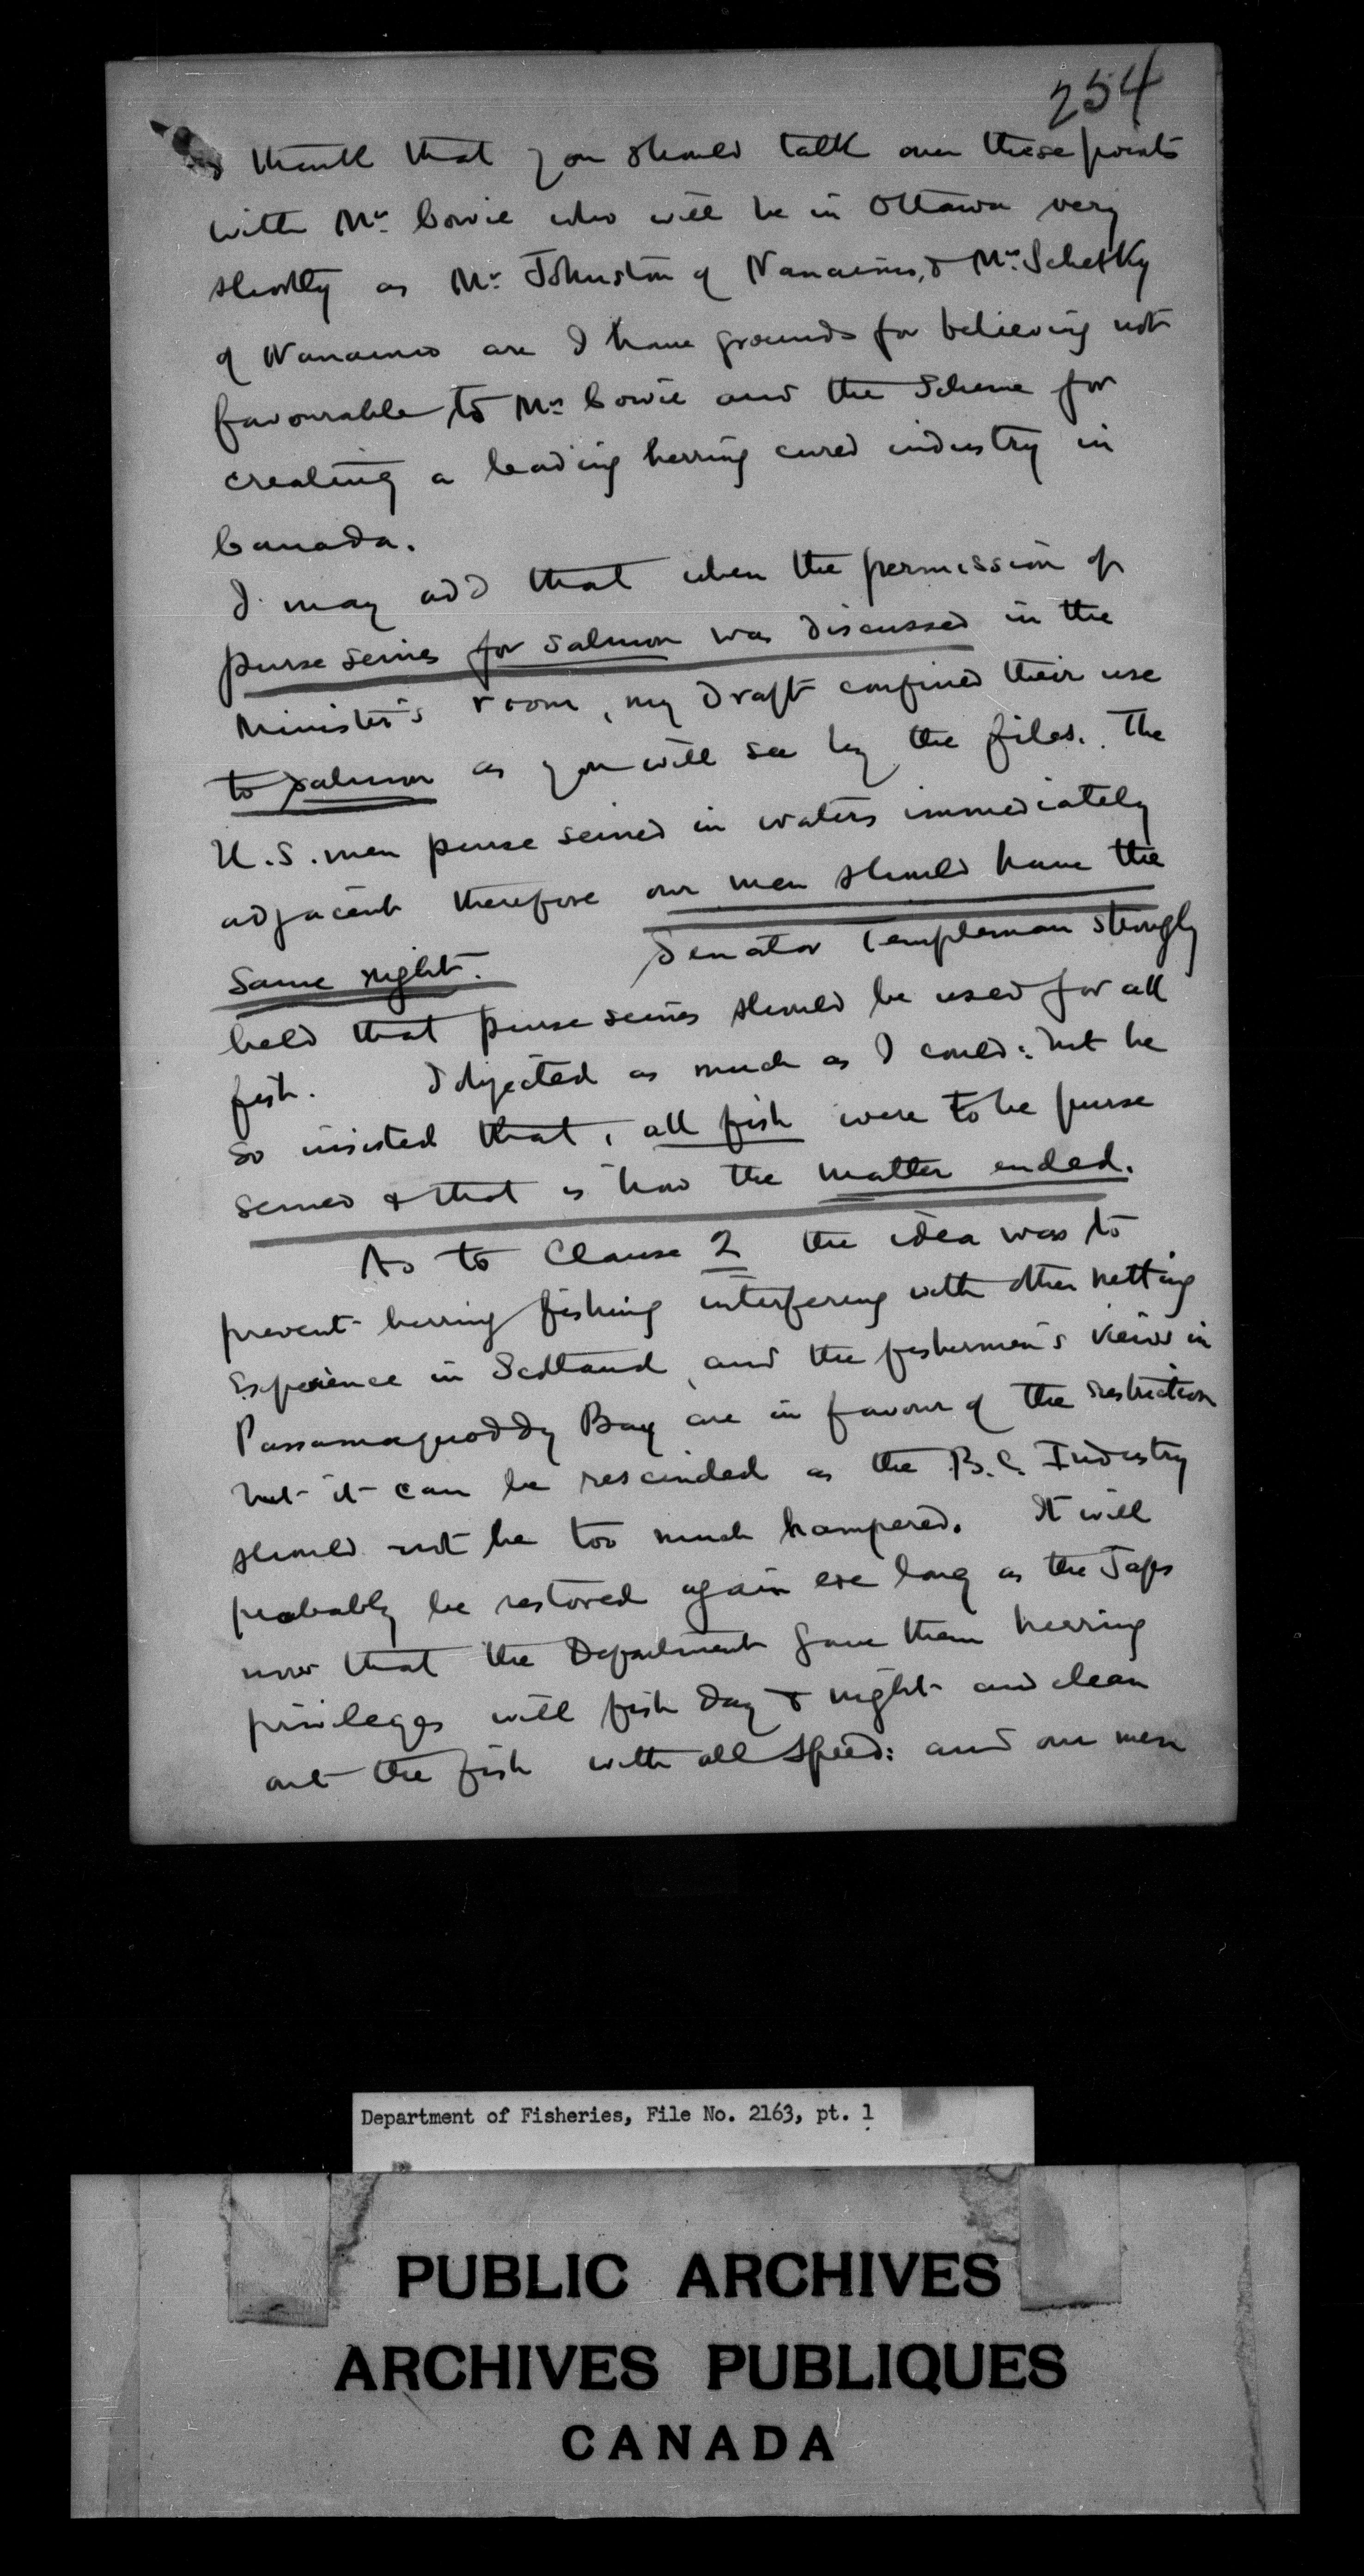 254
I think that you should talk over these points
with Mr. Cowie who will be in Ottawa very
shortly as Mr. Johnston of Nanaimo, & Mr. Schetky
of Nanaimo are I have grounds for believing not
favourable to Mr. Cowie and the Scheme for
creating a leading herring cured industry in
Canada.
I may add that when the permission of
purse seines for salmon was discussed in the
Minister's room, my draft confined their use
to salmon as you will see by the files. The
U.S. men purse seined in waters immediately
adjacent therefore our men should have the
same right. Senator Templeman strongly
held that purse seines should be used for all
fish. I objected as much as I could: but he
so insisted that, all fish were to be purse
seined & that is how the matter ended.
As to Clause 2 the idea was to
prevent herring fishing interfering with other netting
Experience in Scotland and the fishermen's views in
Passamaquoddy Bay are in favour of the restriction
but it can be rescinded as the B.C. Industry
should not be too much hampered. It will
probably be restored again ere long as the Japs
now that the Department gave them herring
privileges will fish day & night and clean
out the fish with all speed: and our men
Department of Fisheries, File No. 2163, pt. 1
PUBLIC ARCHIVES
ARCHIVES PUBLIQUES
CANADA